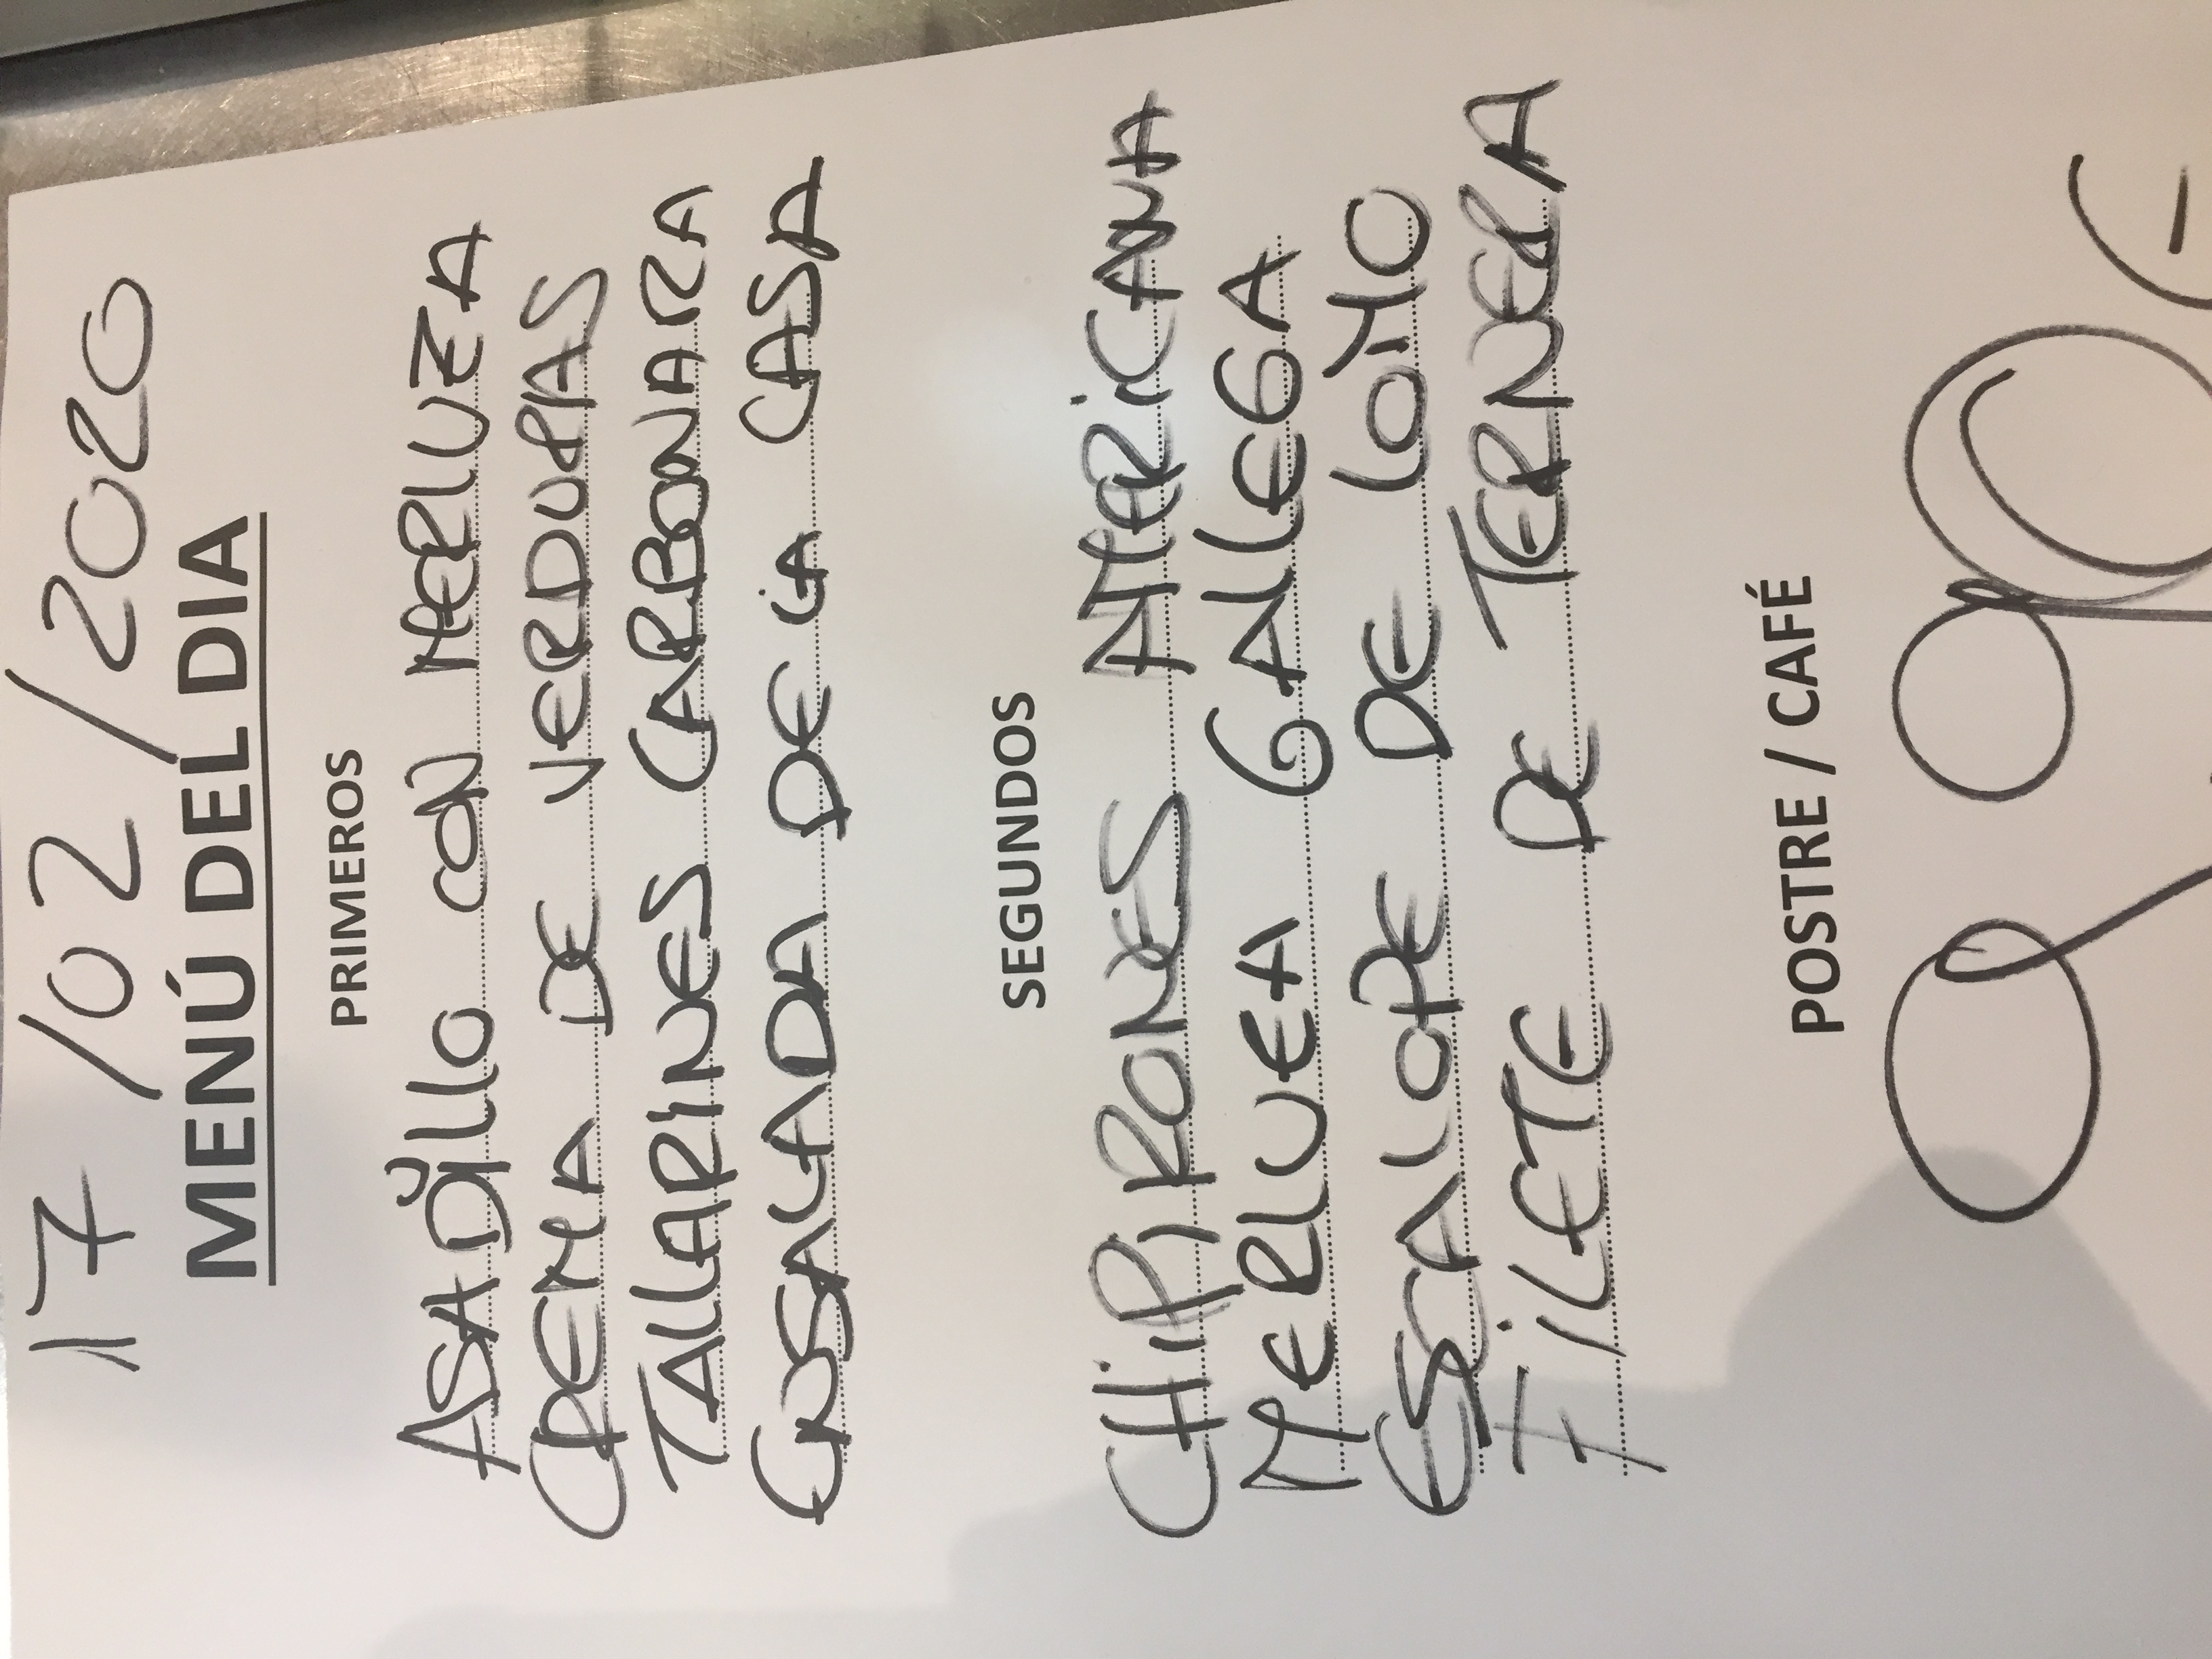 17/02/2020
MENÚ DEL DIA
PRIMEROS
ASADILLO CON MERLUZA
CREMA DE VERDURAS
TALLARINES CARBONARA
ENSALADA DE LA CASA
SEGUNDOS
CHIPIRONES AMERICANA
MERLUEA GALLEGA
ESCALOPE DE LOMO
FILETE DE TERNERA
POSTRE / CAFÉ